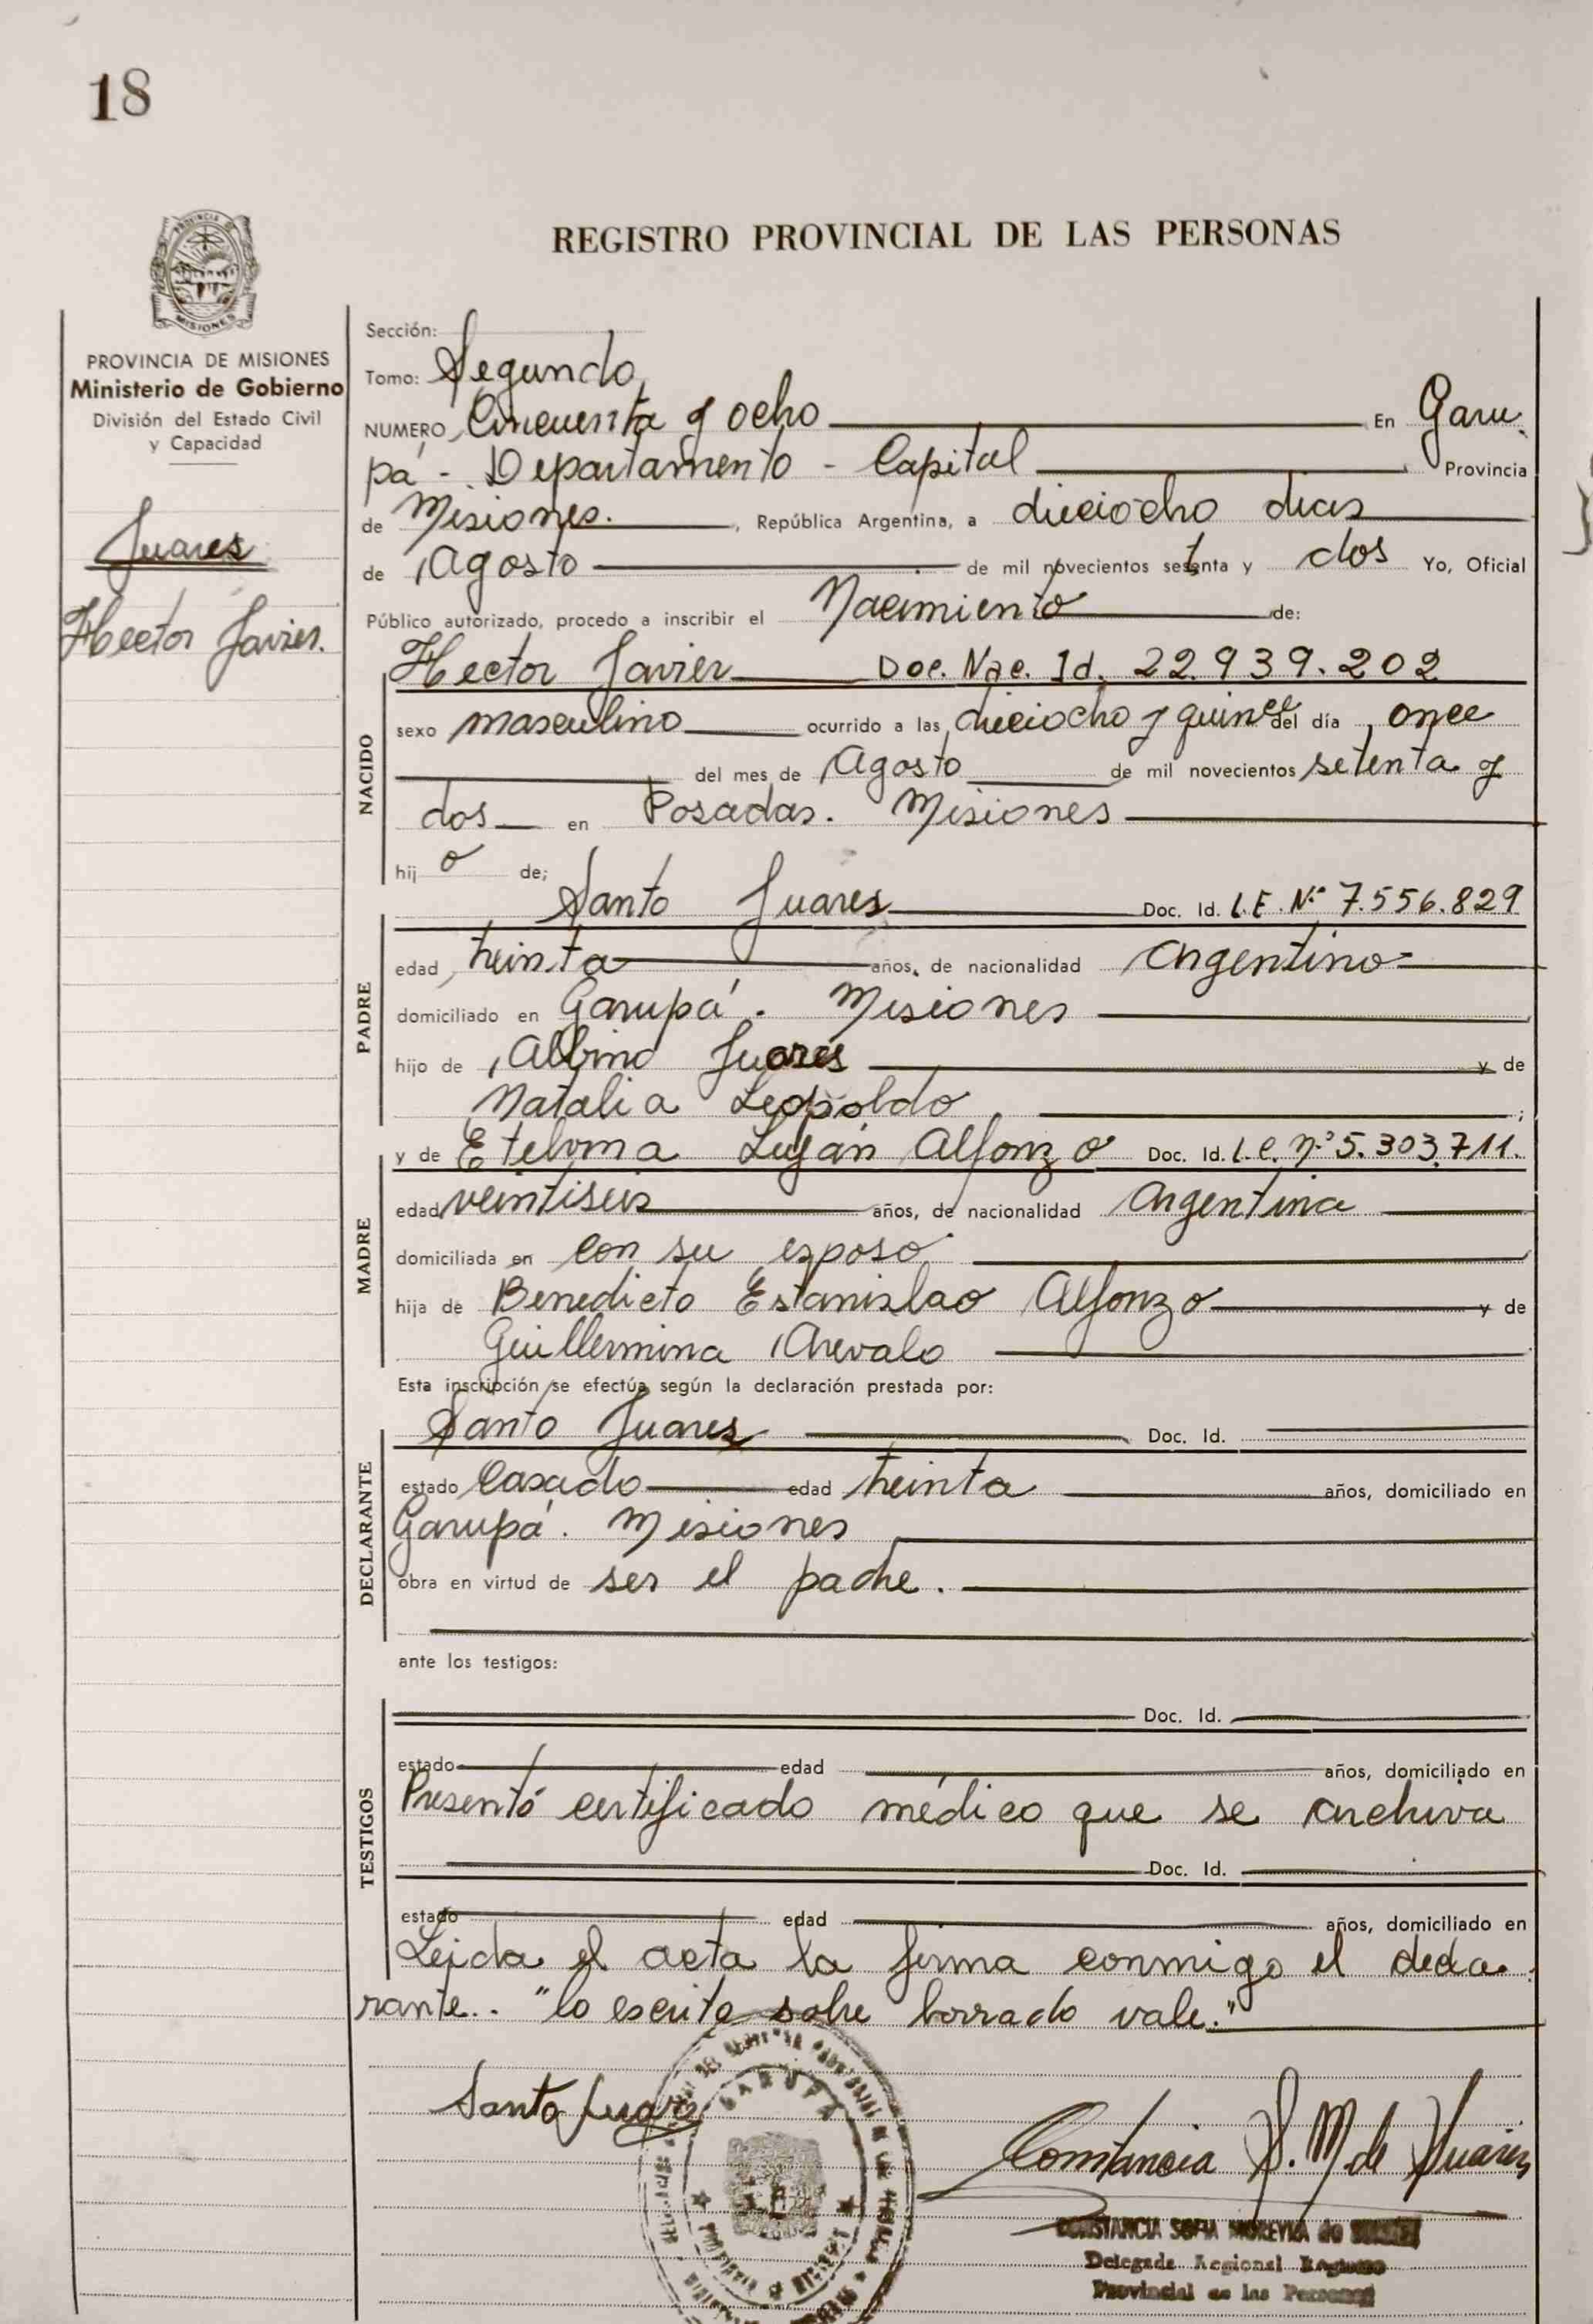 18
REGISTRO PROVINCIAL DE LAS PERSONAS
PROVINCIA DE
MISIONES
PROVINCIA DE MISIONES
Ministerio de Gobierno
División del Estado Civil
y Capacidad
Juares
Hector Javier.
Sección:
Tomo: Segundo
NUMERO Cincuenta y ocho En Garu
pá - Departamento - Capital Provincia
de Misiones. , República Argentina, a dieciocho dias
de Agosto de mil novecientos setenta y dos Yo, Oficial
Público autorizado, procedo a inscribir el Nacimiento de:
NACIDO
Hector Javier Doc. Nac. Id. 22.939.202
sexo masculino ocurrido a las dieciocho y quince del día once
del mes de Agosto de mil novecientos setenta y
dos en Posadas. Misiones
hij o de;
PADRE
Santo Juares Doc. Id. L.E. Nº 7.556.829
edad treinta años, de nacionalidad argentino
domiciliado en Garupá. Misiones
hijo de Albino Juares y de
Natalia Leopoldo ;
MADRE
y de Etelvina Luján Alfonzo Doc. Id. L.C. nº 5.303.711.
edad veintiseis años, de nacionalidad argentina
domiciliada en con su esposo
hija de Benedicto Estanislao Alfonzo y de
Guillermina Arevalo
Esta inscripción se efectúa según la declaración prestada por:
DECLARANTE
Santo Juares Doc. Id.
estado Casado edad treinta años, domiciliado en
Garupá. Misiones
obra en virtud de ser el padre.
ante los testigos:
TESTIGOS
Doc. Id.
estado edad años, domiciliado en
Presentó certificado médico que se archiva
Doc. Id.
estado edad años, domiciliado en
Leida el acta la firma conmigo el decla
rante.. "lo escrito sobre borrado vale."
Santo Juares
GARUPA
Constancia S. M. de Suarez
CONSTANCIA SOFIA MOREYRA de
Delegada Regional Registro
Provincial de las Personas